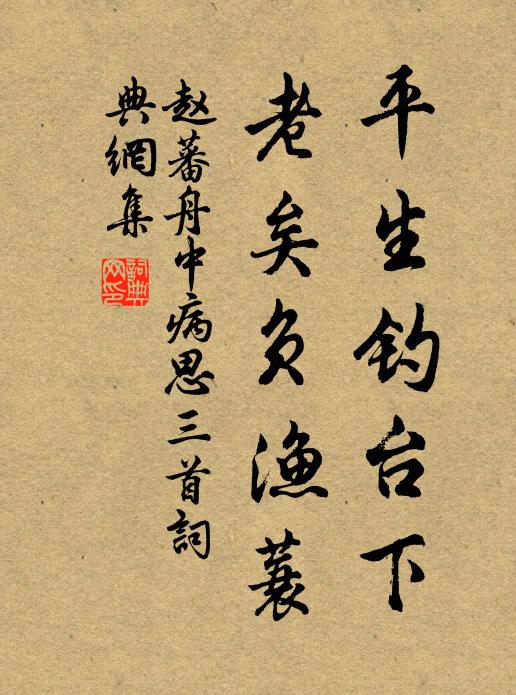 平生钓台下
老矣负渔蓑
赵蕃舟中病思三首詞
典網集
詞典
网印